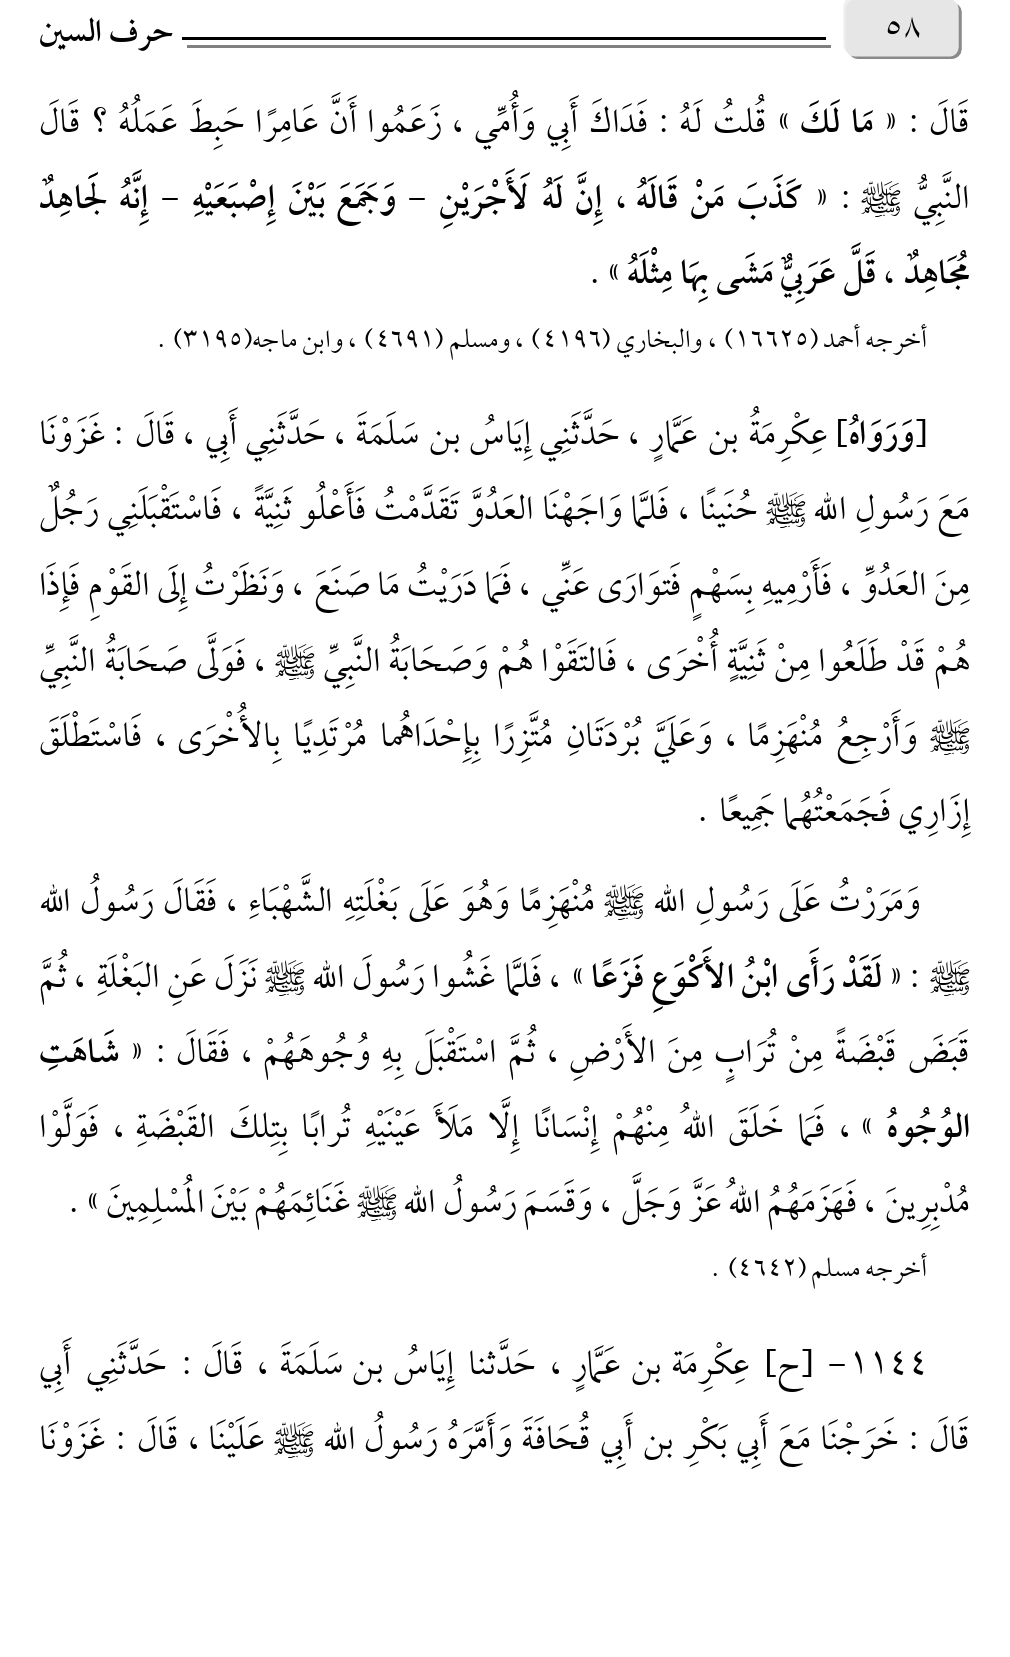 ٥٨
حرف السين
قَالَ : « مَا لَكَ » قُلتُ لَهُ : فَدَاكَ أَبِي وَأُمِّي ، زَعَمُوا أَنَّ عَامِرًا حَبِطَ عَمَلُهُ ؟ قَالَ
النَّبِيُّ ﷺ : « كَذَبَ مَنْ قَالَهُ ، إِنَّ لَهُ لَأَجْرَيْنِ – وَجَمَعَ بَيْنَ إِصْبَعَيْهِ – إِنَّهُ لَجَاهِدٌ
مُجَاهِدٌ ، قَلَّ عَرَبِيٌّ مَشَى بِهَا مِثْلَهُ » .
أخرجه أحمد (١٦٦٢٥) ، والبخاري (٤١٩٦) ، ومسلم (٤٦٩١) ، وابن ماجه(٣١٩٥) .
[وَرَوَاهُ] عِكْرِمَةُ بن عَمَّارٍ ، حَدَّثَنِي إِيَاسُ بن سَلَمَةَ ، حَدَّثَنِي أَبِي ، قَالَ : غَزَوْنَا
مَعَ رَسُولِ الله ﷺ حُنَينًا ، فَلمَّا وَاجَهْنَا العَدُوَّ تَقَدَّمْتُ فَأَعْلُو ثَنِيَّةً ، فَاسْتَقْبَلَنِي رَجُلٌ
مِنَ العَدُوِّ ، فَأَرْمِيهِ بِسَهْمٍ فَتوَارَى عَنِّي ، فَمَا دَرَيْتُ مَا صَنَعَ ، وَنَظَرْتُ إِلَى القَوْمِ فَإِذَا
هُمْ قَدْ طَلَعُوا مِنْ ثَنِيَّةٍ أُخْرَى ، فَالتَقَوْا هُمْ وَصَحَابَةُ النَّبِيِّ ﷺ ، فَوَلَّى صَحَابَةُ النَّبِيِّ
ﷺ وَأَرْجِعُ مُنْهَزِمًا ، وَعَلَيَّ بُرْدَتَانِ مُتَّزِرًا بِإِحْدَاهُما مُرْتَدِيًا بِالأُخْرَى ، فَاسْتَطْلَقَ
إِزَارِي فَجَمَعْتُهُما جَمِيعًا .
وَمَرَرْتُ عَلَى رَسُولِ الله ﷺ مُنْهَزِمًا وَهُوَ عَلَى بَغْلَتِهِ الشَّهْبَاءِ ، فَقَالَ رَسُولُ الله
ﷺ : « لَقَدْ رَأَى ابْنُ الأَكْوَعِ فَزَعًا » ، فَلمَّا غَشُوا رَسُولَ الله ﷺ نَزَلَ عَنِ البَغْلَةِ ، ثُمَّ
قَبَضَ قَبْضَةً مِنْ تُرَابٍ مِنَ الأَرْضِ ، ثُمَّ اسْتَقْبَلَ بِهِ وُجُوهَهُمْ ، فَقَالَ : « شَاهَتِ
الوُجُوهُ » ، فَمَا خَلَقَ اللهُ مِنْهُمْ إِنْسَانًا إِلَّا مَلَأَ عَيْنَيْهِ تُرابًا بِتِلكَ القَبْضَةِ ، فَوَلَّوْا
مُدْبِرِينَ ، فَهَزَمَهُمُ اللهُ عَزَّ وَجَلَّ ، وَقَسَمَ رَسُولُ الله ﷺ غَنَائِمَهُمْ بَيْنَ الُمسْلِمِينَ » .
أخرجه مسلم (٤٦٤٢) .
١١٤٤– [ح] عِكْرِمَة بن عَمَّارٍ ، حَدَّثنا إِيَاسُ بن سَلَمَةَ ، قَالَ : حَدَّثَنِي أَبِي
قَالَ : خَرَجْنَا مَعَ أَبِي بَكْرِ بن أَبِي قُحَافَةَ وَأَمَّرَهُ رَسُولُ الله ﷺ عَلَيْنَا ، قَالَ : غَزَوْنَا